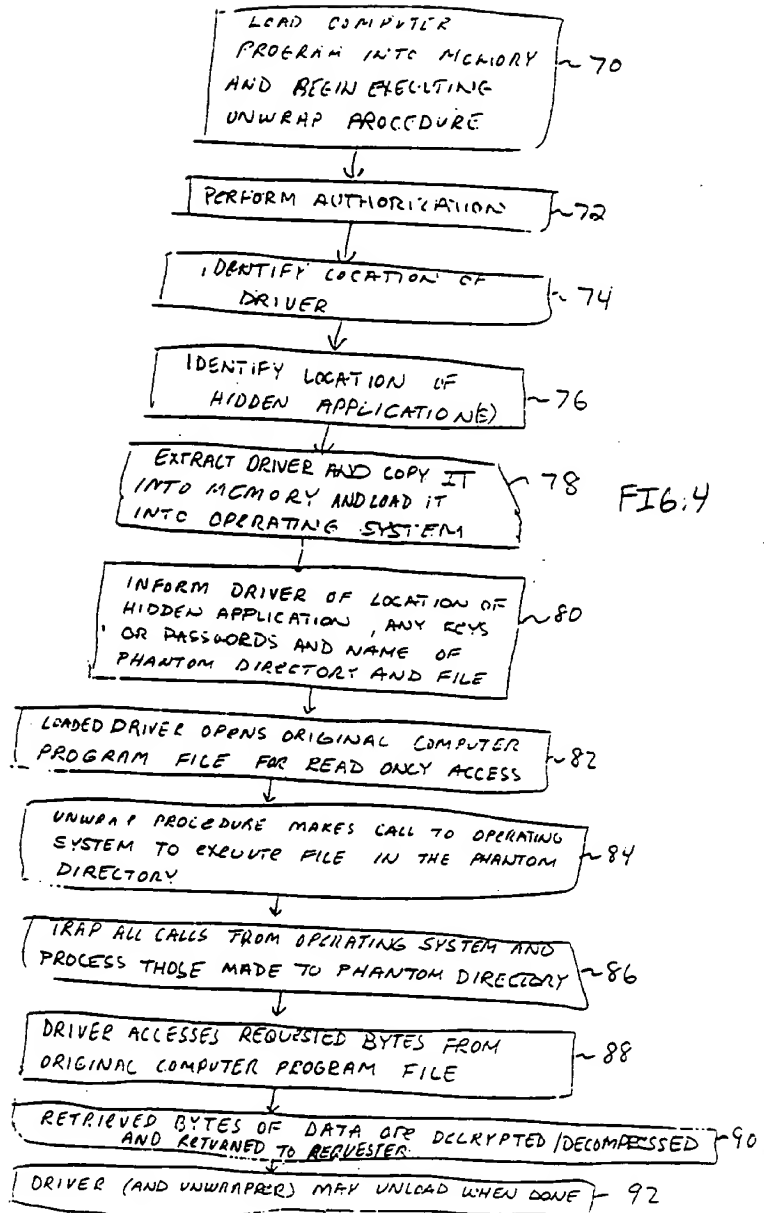 LOAD COMPUTER
PROGRAM INTO MEMORY
AND BEGIN EXECUTING
UNWRAP PROCEDURE
~ 70
PERFORM AUTHORIZATION
~72
IDENTIFY LOCATION OF
DRIVER
~ 74
IDENTIFY LOCATION OF
HIDDEN APPLICATION(S)
~76
EXTRACT DRIVER AND COPY IT
INTO MEMORY AND LOAD IT
INTO OPERATING SYSTEM
~ 78
FIG. 4
INFORM DRIVER OF LOCATION OF
HIDDEN APPLICATION, ANY KEYS
OR PASSWORDS AND NAME OF
PHANTOM DIRECTORY AND FILE
~80
LOADED DRIVER OPENS ORIGINAL COMPUTER
PROGRAM FILE FOR READ ONLY ACCESS
~82
UNWRAP PROCEDURE MAKES CALL TO OPERATING
SYSTEM TO EXECUTE FILE IN THE PHANTOM
DIRECTORY
~84
TRAP ALL CALLS FROM OPERATING SYSTEM AND
PROCESS THOSE MADE TO PHANTOM DIRECTORY
~86
DRIVER ACCESSES REQUESTED BYTES FROM
ORIGINAL COMPUTER PROGRAM FILE
~88
RETRIEVED BYTES OF DATA ARE DECRYPTED/DECOMPRESSED
AND RETURNED TO REQUESTER
~90
DRIVER (AND UNWRAPPER) MAY UNLOAD WHEN DONE
~ 92